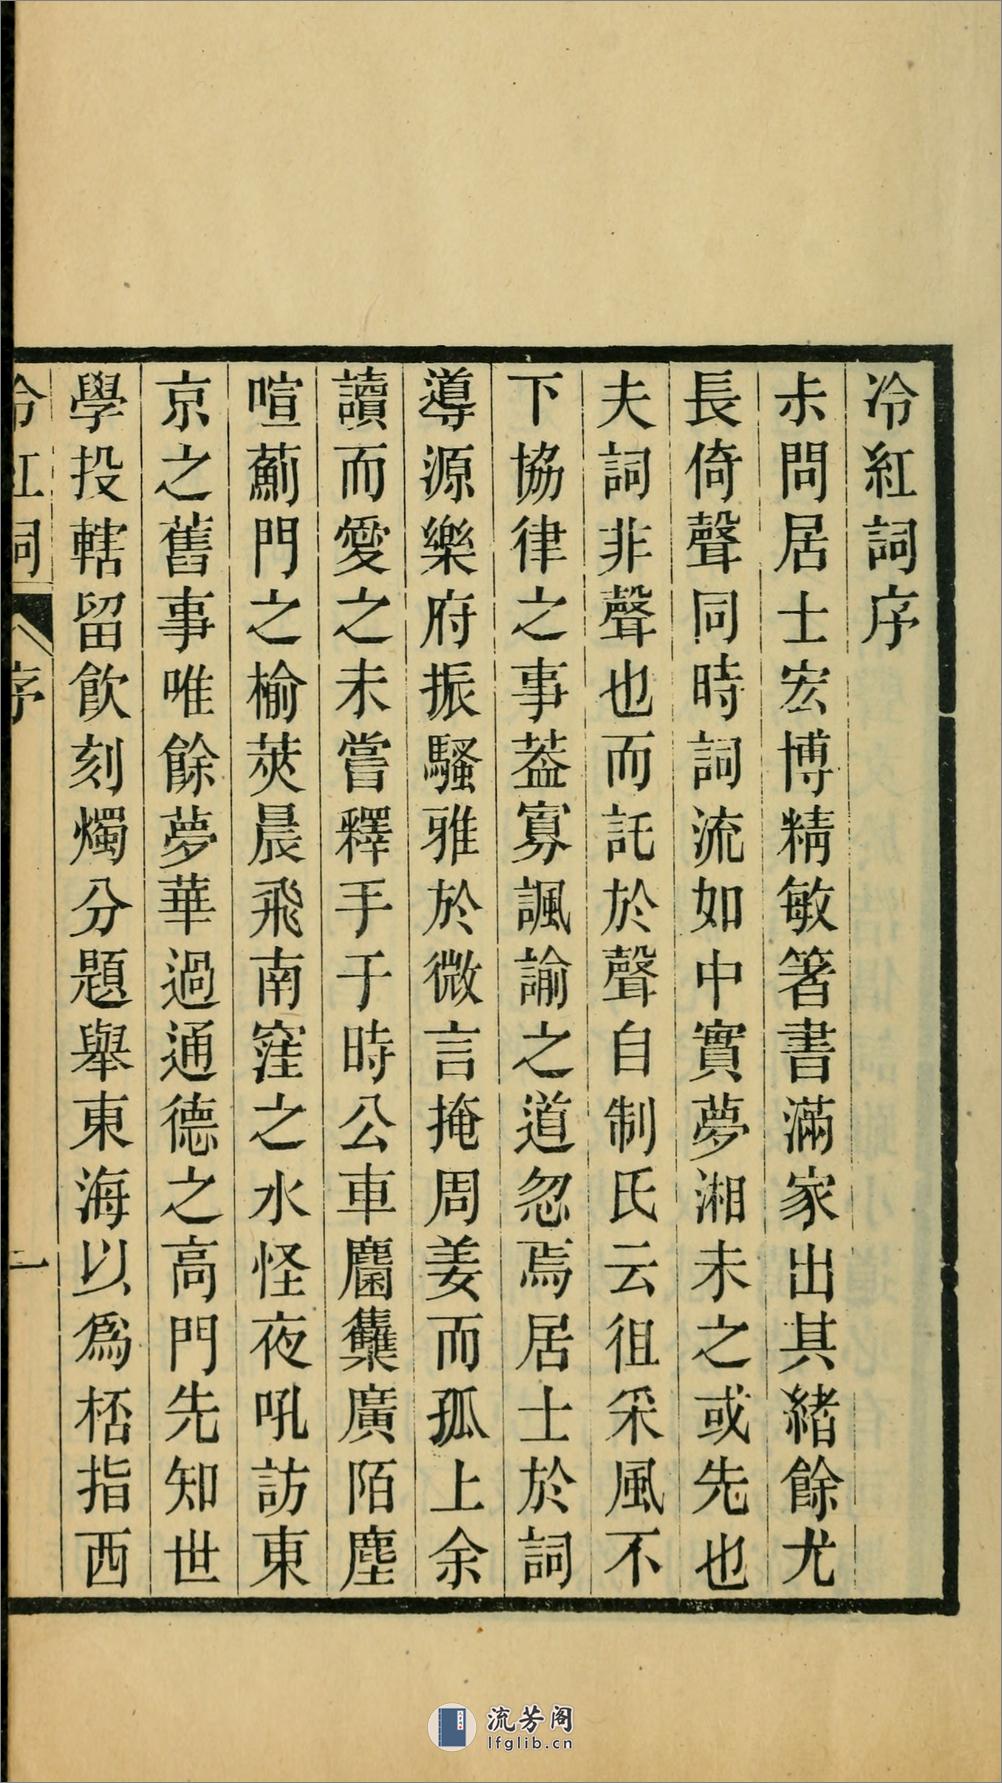 冷紅詞序
尗問居士宏博精敏箸書滿家出其緒餘尤
長倚聲同時詞流如中實夢湘未之或先也
夫詞非聲也而託於聲自制氏云徂采風不
下協律之事葢寡諷諭之道忽焉居士於詞
導源樂府振騷雅於微言掩周姜而孤上余
讀而愛之未嘗釋手于時公車麕集廣陌塵
喧薊門之榆莢晨飛南窪之水怪夜吼訪東
京之舊事唯餘夢華過通德之高門先知世
學投轄留飲刻燭分題舉東海以為桮指西
冷紅詞 序 一
流芳阁
lfglib.cn